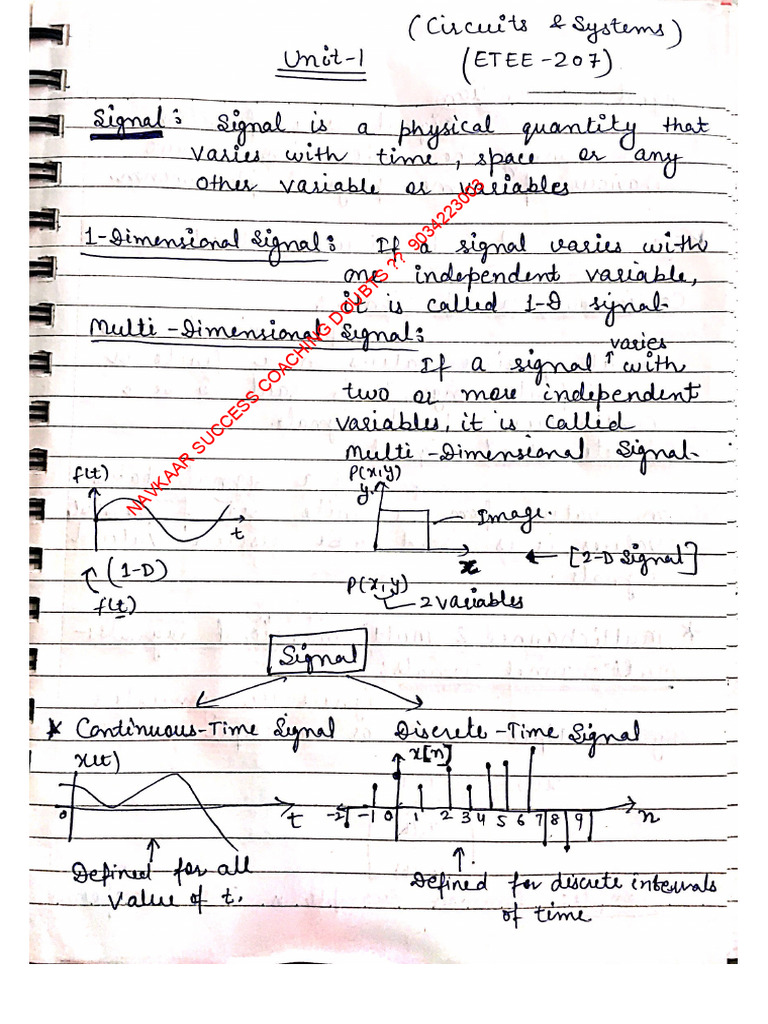 (Circuits & Systems)
Unit-1
(ETEE-207)
Signal: Signal is a physical quantity that
varies with time, space or any
other variable or variables
1-Dimensional Signal: If a signal varies with
one independent variable,
it is called 1-D signal.
Multi-Dimensional Signal:
varies
If a signal ↑ with
two or more independent
variables, it is called
Multi-Dimensional Signal.
f(t)
P(x,y)
y
Image.
t
x
← [2-D Signal]
(1-D)
f(t)
P(x,y)
2 variables
Signal
* Continuous-Time Signal Discrete-Time Signal
x(t)
x[n]
0
t
-2 -1 0 1 2 3 4 5 6 7 8 9
n
Defined for all
value of t.
Defined for discrete intervals
of time
NAVKAAR SUCCESS COACHING DOUBTS ?? 9034223003